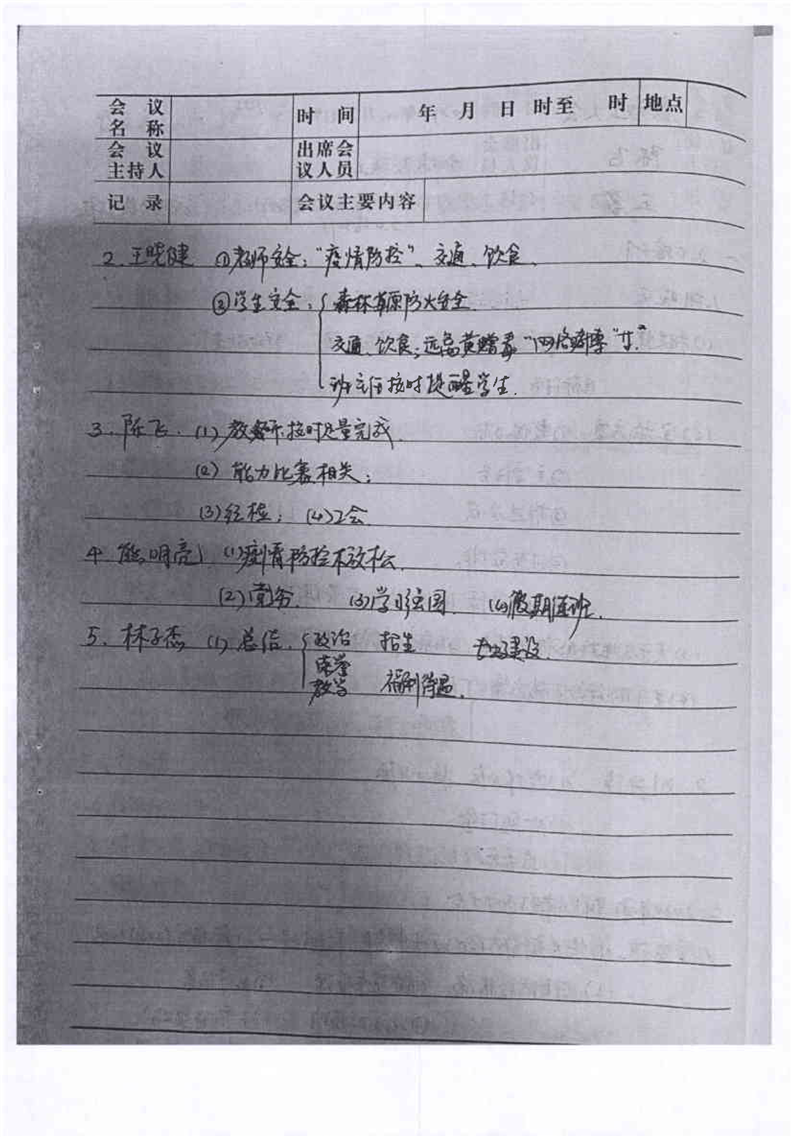 会议名称 时间 年 月 日 时至 时 地点
会议主持人 出席会议人员
记录 会议主要内容
2、王晓健 ①老师安全："疫情防控"、交通、饮食、
②学生安全：森林草原防火安全.
交通、饮食；远离黄赌毒"网络赌博"
班主任按时提醒学生.
3、陈飞. (1) 教师按时足量完成.
(2) 能力比赛相关；
(3) 经检； (4)工会
4、熊明亮 (1)疫情防控不放松.
(2)党务. (3)学习强国. (4)假期值班.
5、林子杰 (1)总结. 政治 招生 建设.
教学 福利待遇.